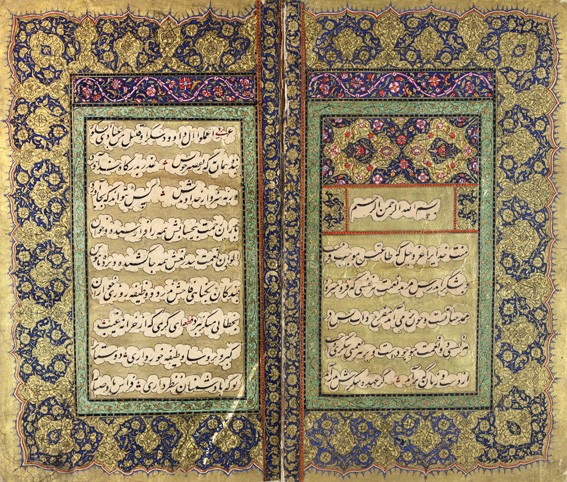 بسم الله الرحمن الرحیم
منت خدایرا عز و جل که طاعتش موجب قربتست
و بشکر اندرش مزید نعمت هر نفسی که فرو میرود
ممد حیاتست و چون بر می آید مفرح ذات پس در
هر نفسی دو نعمت موجودست و بر هر نعمتی شکری واجب
از دست و زبان که برآید کز عهده شکرش بدر آید
اعملوا آل داود شکرا و قلیل من عبادی الشکور
بنده همان به که ز تقصیر خویش عذر بدرگاه خدای آورد
ورنه سزاوار خداوندیش کس نتواند که بجای آورد
باران رحمت بیحسابش همه را رسیده و خوان
الوان نعمت بیدریغش همه جا کشیده پرده ناموس
بندگان بگناه فاحش ندرد و وظیفه روزی خواران
بخطای منکر نبرد ای کریمی که از خزانه غیب
گبر و ترسا وظیفه خور داری دوستان
تو که با دشمنان نظر داری فراش باد صبا